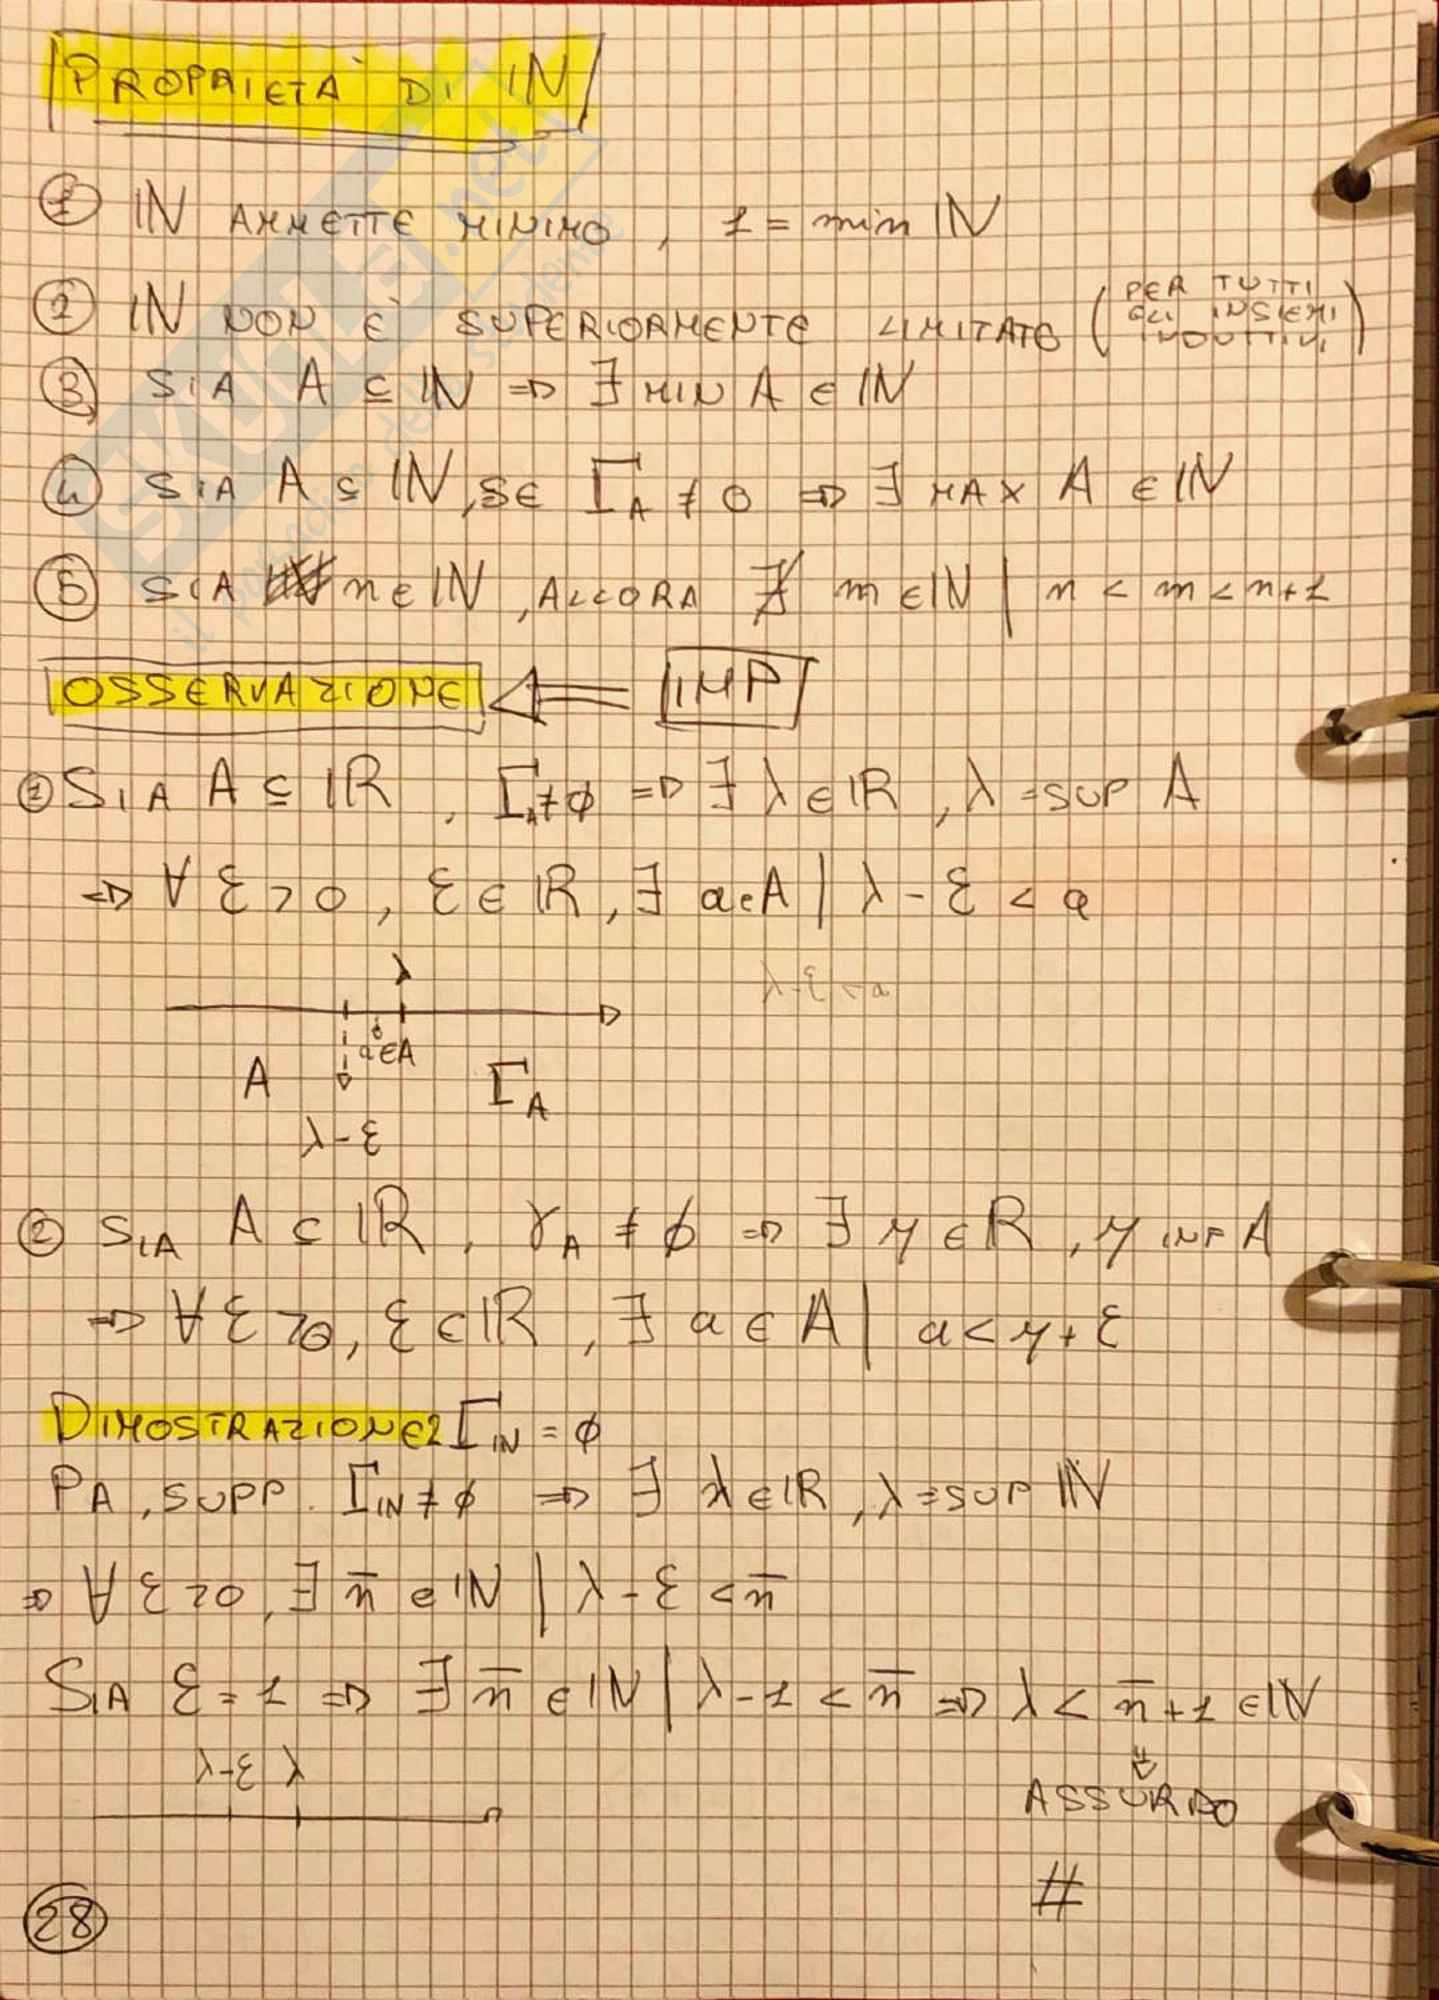 PROPRIETÀ DI ℕ
① ℕ AMMETTE MINIMO, 1 = min ℕ
② ℕ NON È SUPERIORMENTE LIMITATO (PER TUTTI GLI INSIEMI INDUTTIVI)
③ SIA A ⊆ ℕ ⇒ ∃ MIN A ∈ ℕ
④ SIA A ⊆ ℕ, SE Γ_A ≠ 0 ⇒ ∃ MAX A ∈ ℕ
⑤ SIA n ∈ ℕ, ALLORA ∄ m ∈ ℕ | n < m < n+1
OSSERVAZIONE ⇐ IMP
① SIA A ⊆ ℝ, Γ_A ≠ ∅ ⇒ ∃ λ ∈ ℝ, λ = SUP A
⇒ ∀ ε > 0, ε ∈ ℝ, ∃ a ∈ A | λ - ε < a
λ
λ-ε<a
a∈A
A Γ_A
λ-ε
② SIA A ⊆ ℝ, γ_A ≠ ∅ ⇒ ∃ μ ∈ ℝ, μ INF A
⇒ ∀ ε > 0, ε ∈ ℝ, ∃ a ∈ A | a < μ + ε
DIMOSTRAZIONE 2 Γ_ℕ = ∅
PA, SUPP. Γ_ℕ ≠ ∅ ⇒ ∃ λ ∈ ℝ, λ = SUP ℕ
⇒ ∀ ε > 0, ∃ n̅ ∈ ℕ | λ - ε < n̅
SIA ε = 1 ⇒ ∃ n̅ ∈ ℕ | λ - 1 < n̅ ⇒ λ < n̅ + 1 ∈ ℕ
λ-ε λ
⇓
ASSURDO
#
28
SKUOLA.net
il portale dello studente